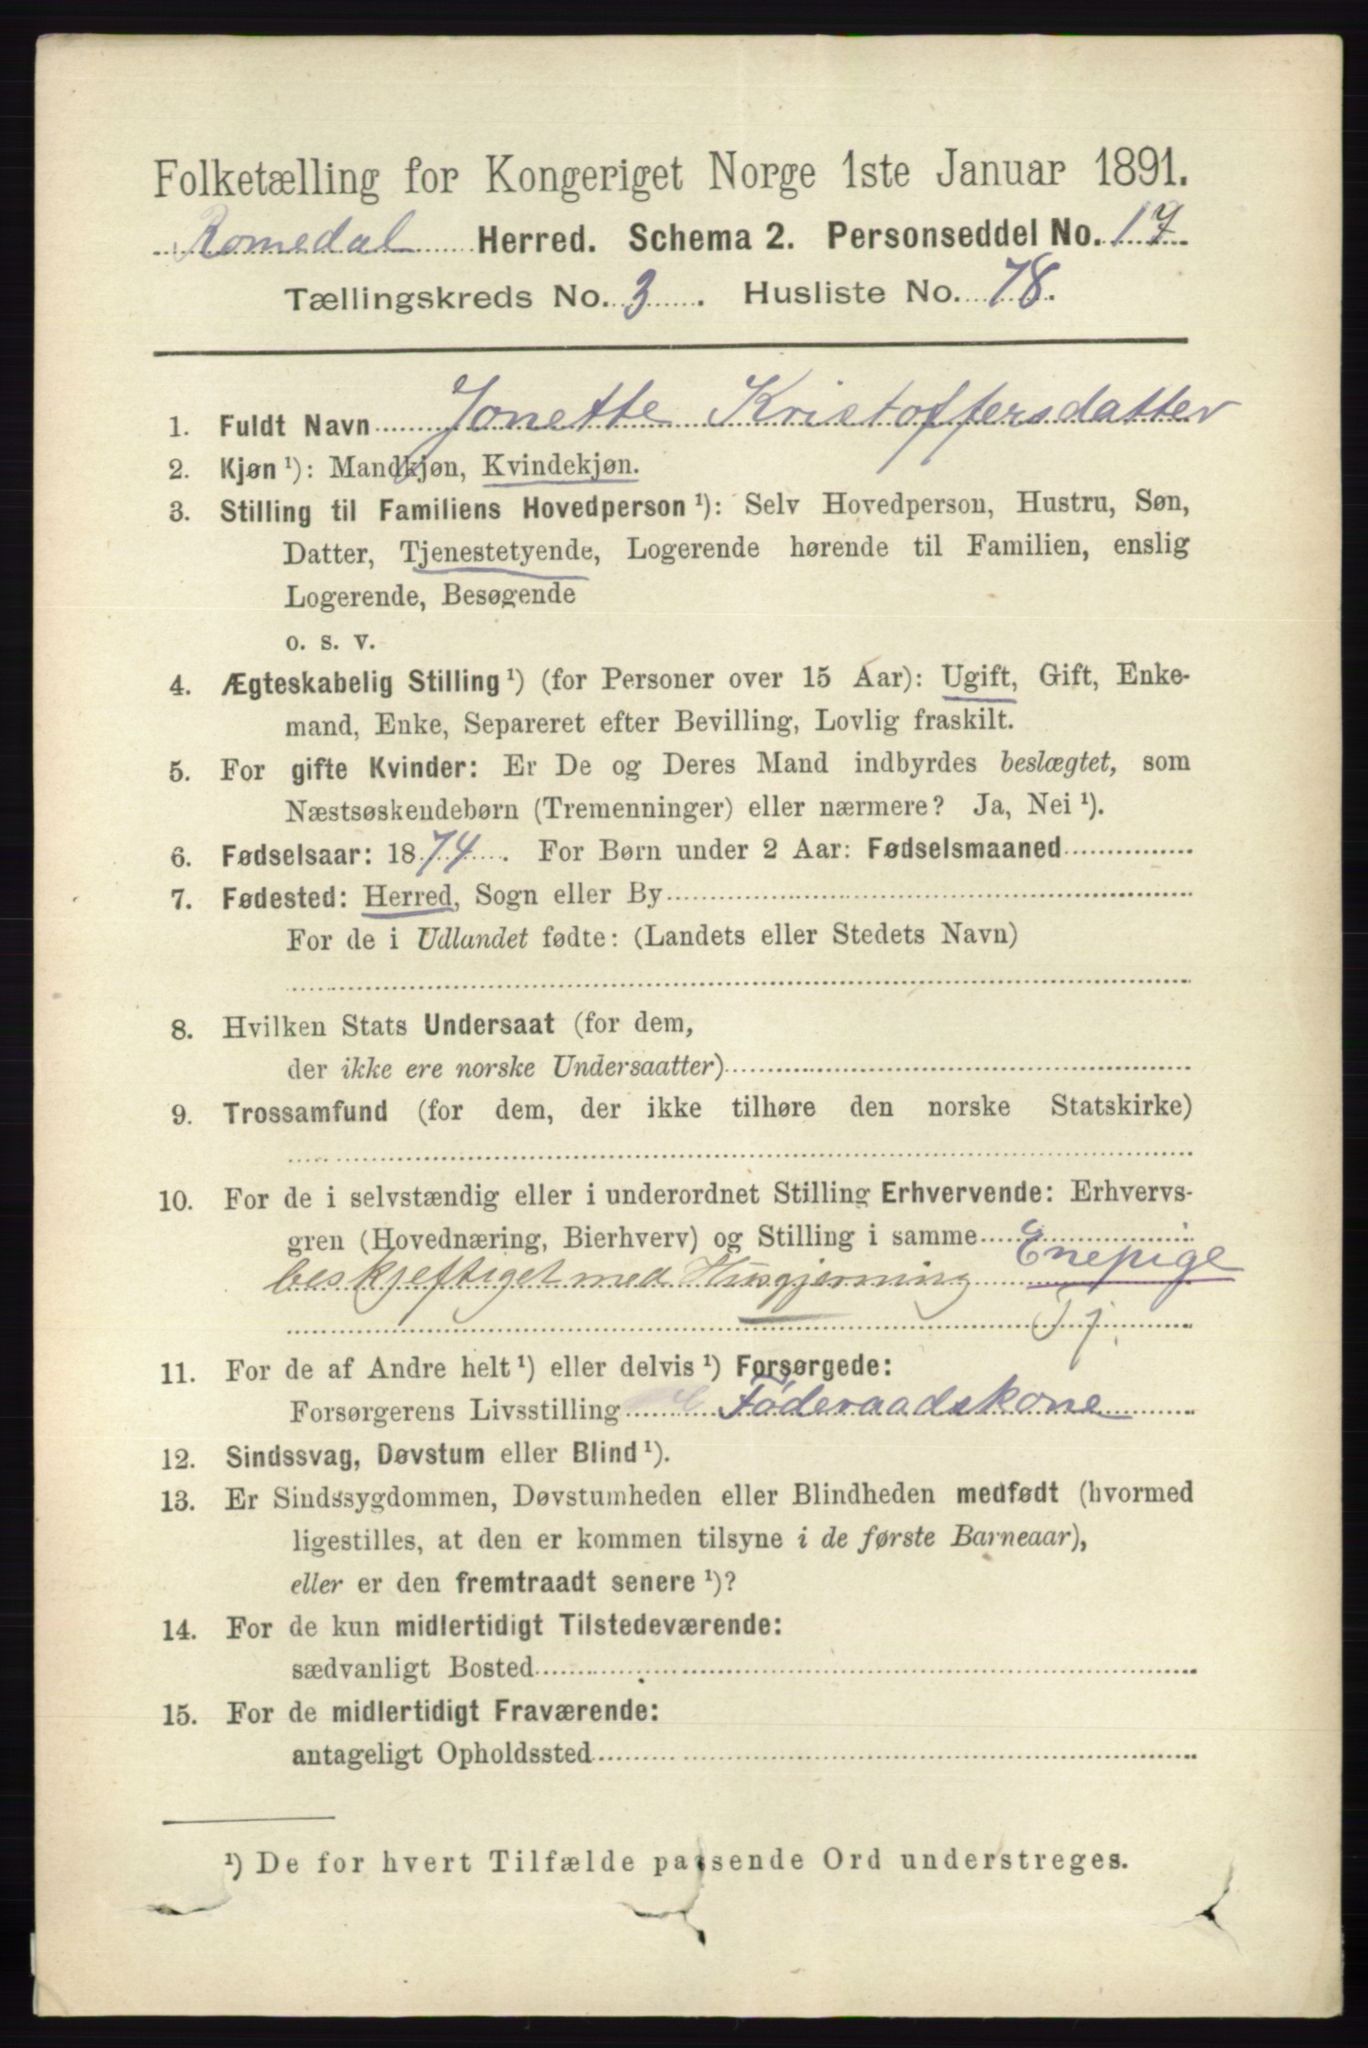 Folketælling for Kongeriget Norge 1ste Januar 1891.
Romedal Herred. Schema 2. Personseddel No. 17
Tællingskreds No. 3. Husliste No. 78.
1. Fuldt Navn Jonette Kristoffersdatter
2. Kjøn ¹): Mandkjøn, Kvindekjøn.
3. Stilling til Familiens Hovedperson ¹): Selv Hovedperson, Hustru, Søn,
Datter, Tjenestetyende, Logerende hørende til Familien, enslig
Logerende, Besøgende
o. s. v.
4. Ægteskabelig Stilling ¹) (for Personer over 15 Aar): Ugift, Gift, Enke-
mand, Enke, Separeret efter Bevilling, Lovlig fraskilt.
5. For gifte Kvinder: Er De og Deres Mand indbyrdes beslægtet, som
Næstsøskendebørn (Tremenninger) eller nærmere? Ja, Nei ¹).
6. Fødselsaar: 1874. For Børn under 2 Aar: Fødselsmaaned
7. Fødested: Herred, Sogn eller By
For de i Udlandet fødte: (Landets eller Stedets Navn)
8. Hvilken Stats Undersaat (for dem,
der ikke ere norske Undersaatter)
9. Trossamfund (for dem, der ikke tilhøre den norske Statskirke)
10. For de i selvstændig eller i underordnet Stilling Erhvervende: Erhvervs-
gren (Hovednæring, Bierhverv) og Stilling i samme Enepige
beskjeftiget med Husgjerning
Tj.
11. For de af Andre helt ¹) eller delvis ¹) Forsørgede:
Forsørgerens Livsstilling Føderaadskone
12. Sindssvag, Døvstum eller Blind ¹).
13. Er Sindssygdommen, Døvstumheden eller Blindheden medfødt (hvormed
ligestilles, at den er kommen tilsyne i de første Barneaar),
eller er den fremtraadt senere ¹)?
14. For de kun midlertidigt Tilstedeværende:
sædvanligt Bosted
15. For de midlertidigt Fraværende:
antageligt Opholdssted
¹) De for hvert Tilfælde passende Ord understreges.